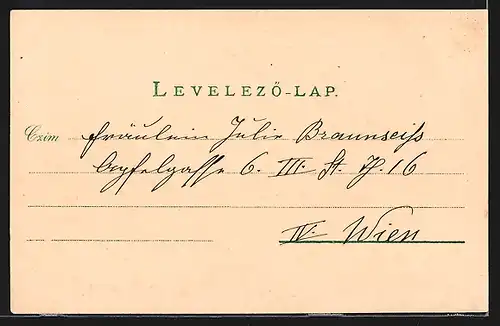 LEVELEZŐ-LAP.
Czim Fräulein Julie Braunseiss
Apfelgasse 6. III. St. Th. 16
IV. Wien